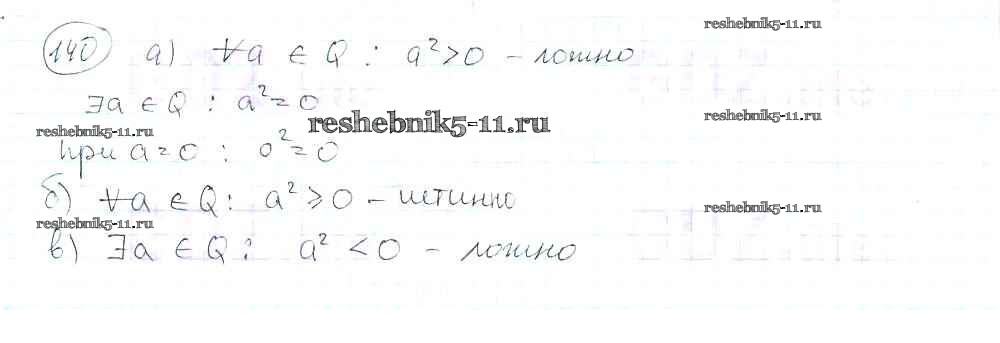 reshebnik5-11.ru
140 а) ∀a ∈ Q : a² > 0 – ложно
∃a ∈ Q : a² = 0
reshebnik5-11.ru
reshebnik5-11.ru
reshebnik5-11.ru
при a = 0 : 0² = 0
б) ∀a ∈ Q : a² ≥ 0 – истинно
reshebnik5-11.ru
reshebnik5-11.ru
в) ∃a ∈ Q : a² < 0 – ложно